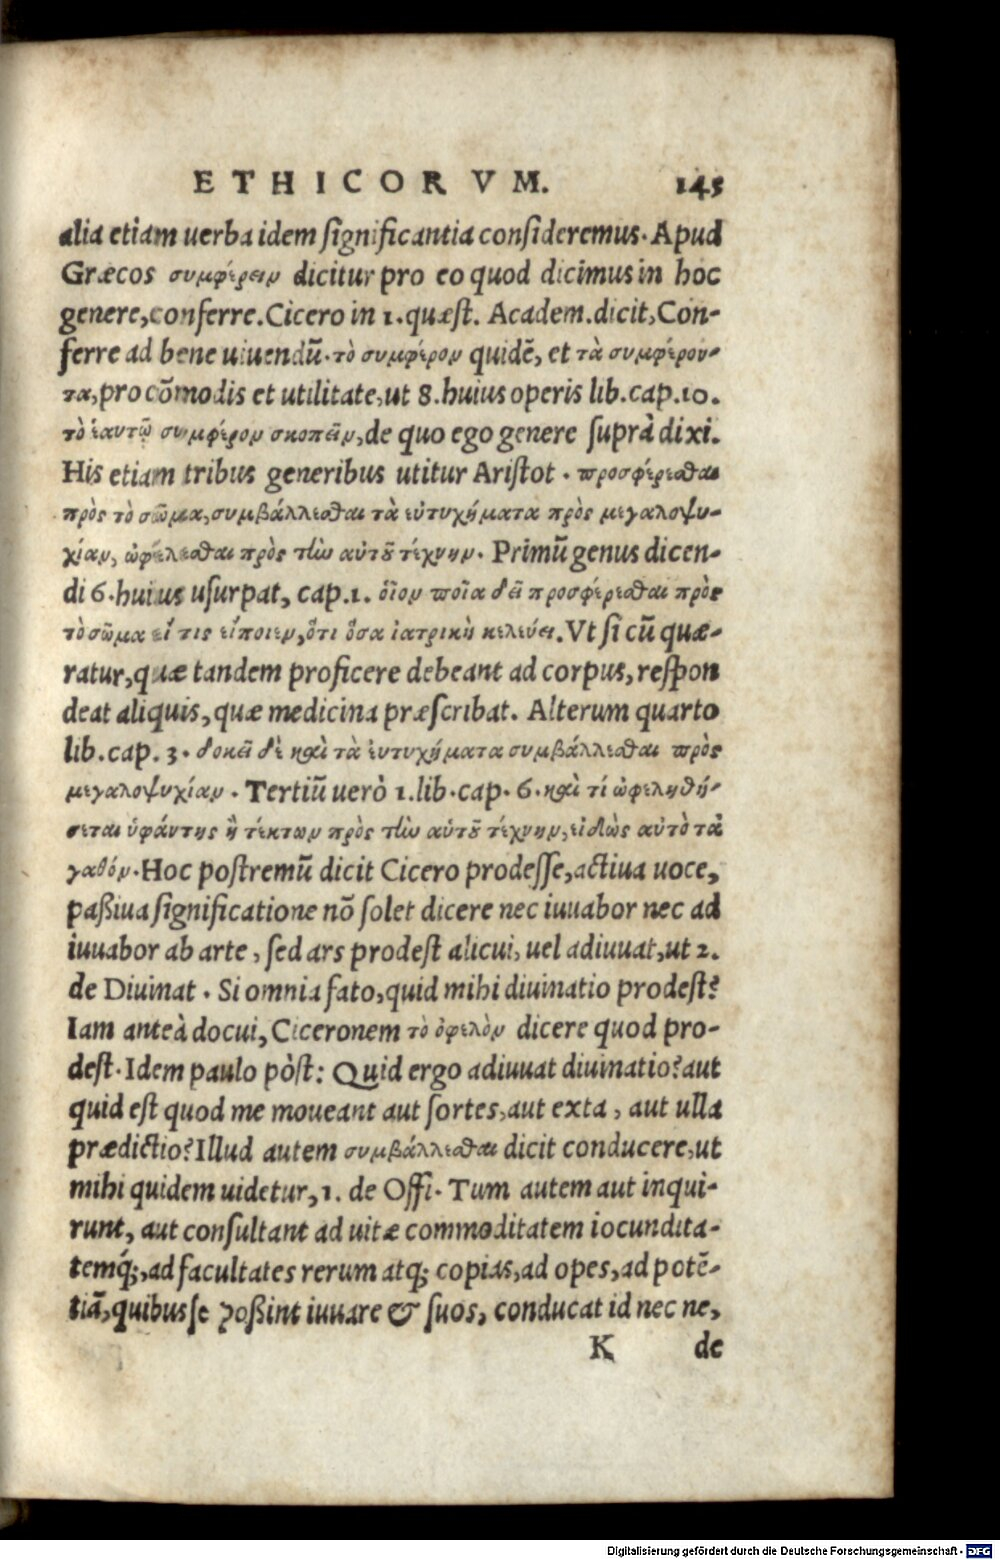 ETHICORVM. 145
alia etiam uerba idem significantia consideremus. Apud
Græcos συμφέρειν dicitur pro eo quod dicimus in hoc
genere, conferre. Cicero in 1. quæst. Academ. dicit, Con-
ferre ad bene uiuendū. τὸ συμφέρον quidē, et τὰ συμφέρον-
τα, pro cōmodis et utilitate, ut 8. huius operis lib. cap. 10.
τὸ ἑαυτῷ συμφέρον σκοπεῖν, de quo ego genere suprà dixi.
His etiam tribus generibus utitur Aristot. προσφέρεσθαι
πρὸς τὸ σῶμα, συμβάλλεσθαι τὰ εὐτυχήματα πρὸς μεγαλοψυ-
χίαν, ὠφελεῖσθαι πρὸς τὴν αὑτοῦ τέχνην. Primū genus dicen-
di 6. huius usurpat, cap. 1. οἷον ποῖα δεῖ προσφέρεσθαι πρὸς
τὸ σῶμα εἴ τις εἴποιεν, ὅτι ὅσα ἰατρικὴ κελεύει. Vt si cū quæ-
ratur, quæ tandem proficere debeant ad corpus, respon
deat aliquis, quæ medicina præscribat. Alterum quarto
lib. cap. 3. δοκεῖ δὲ καὶ τὰ ἐυτυχήματα συμβάλλεσθαι πρὸς
μεγαλοψυχίαν. Tertiū uerò 1. lib. cap. 6. καὶ τί ὠφεληθή-
σεται ὑφάντης ἢ τέκτων πρὸς τὴν αὑτοῦ τέχνην, εἰδὼς αὐτὸ τἀ
γαθόν. Hoc postremū dicit Cicero prodesse, actiua uoce,
paßiua significatione nō solet dicere nec iuuabor nec ad
iuuabor ab arte, sed ars prodest alicui, uel adiuuat, ut 2.
de Diuinat. Si omnia fato, quid mihi diuinatio prodest?
Iam anteà docui, Ciceronem τὸ ὀφελὸν dicere quod pro-
dest. Idem paulo pòst: Quid ergo adiuuat diuinatio? aut
quid est quod me moueant aut sortes, aut exta, aut ulla
prædictio? Illud autem συμβάλλεσθαι dicit conducere, ut
mihi quidem uidetur, 1. de Offi. Tum autem aut inqui-
runt, aut consultant ad uitæ commoditatem iocundita-
temq́;, ad facultates rerum atq; copias, ad opes, ad potē-
tiā, quibus se poßint iuuare & suos, conducat id nec ne,
K de
Digitalisierung gefördert durch die Deutsche Forschungsgemeinschaft - DFG